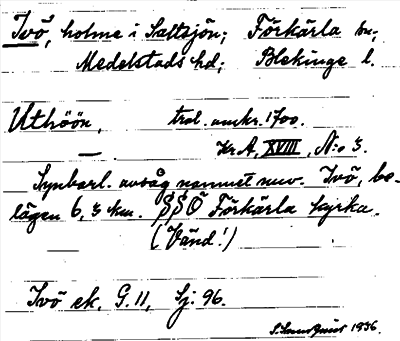 Ivö, holme i Saltsjön; Förkärla sn;
Medelstads hd; Blekinge l.
Uthöön, trol. omkr. 1700.
Kr A, XVIII, N:o 3.
Synbarl. avsåg namnet nuv. Ivö, be-
lägen 6,3 km. SSÖ Förkärla kyrka.
(Vänd!)
Ivö ek. G. 11, Sj. 96.
1936